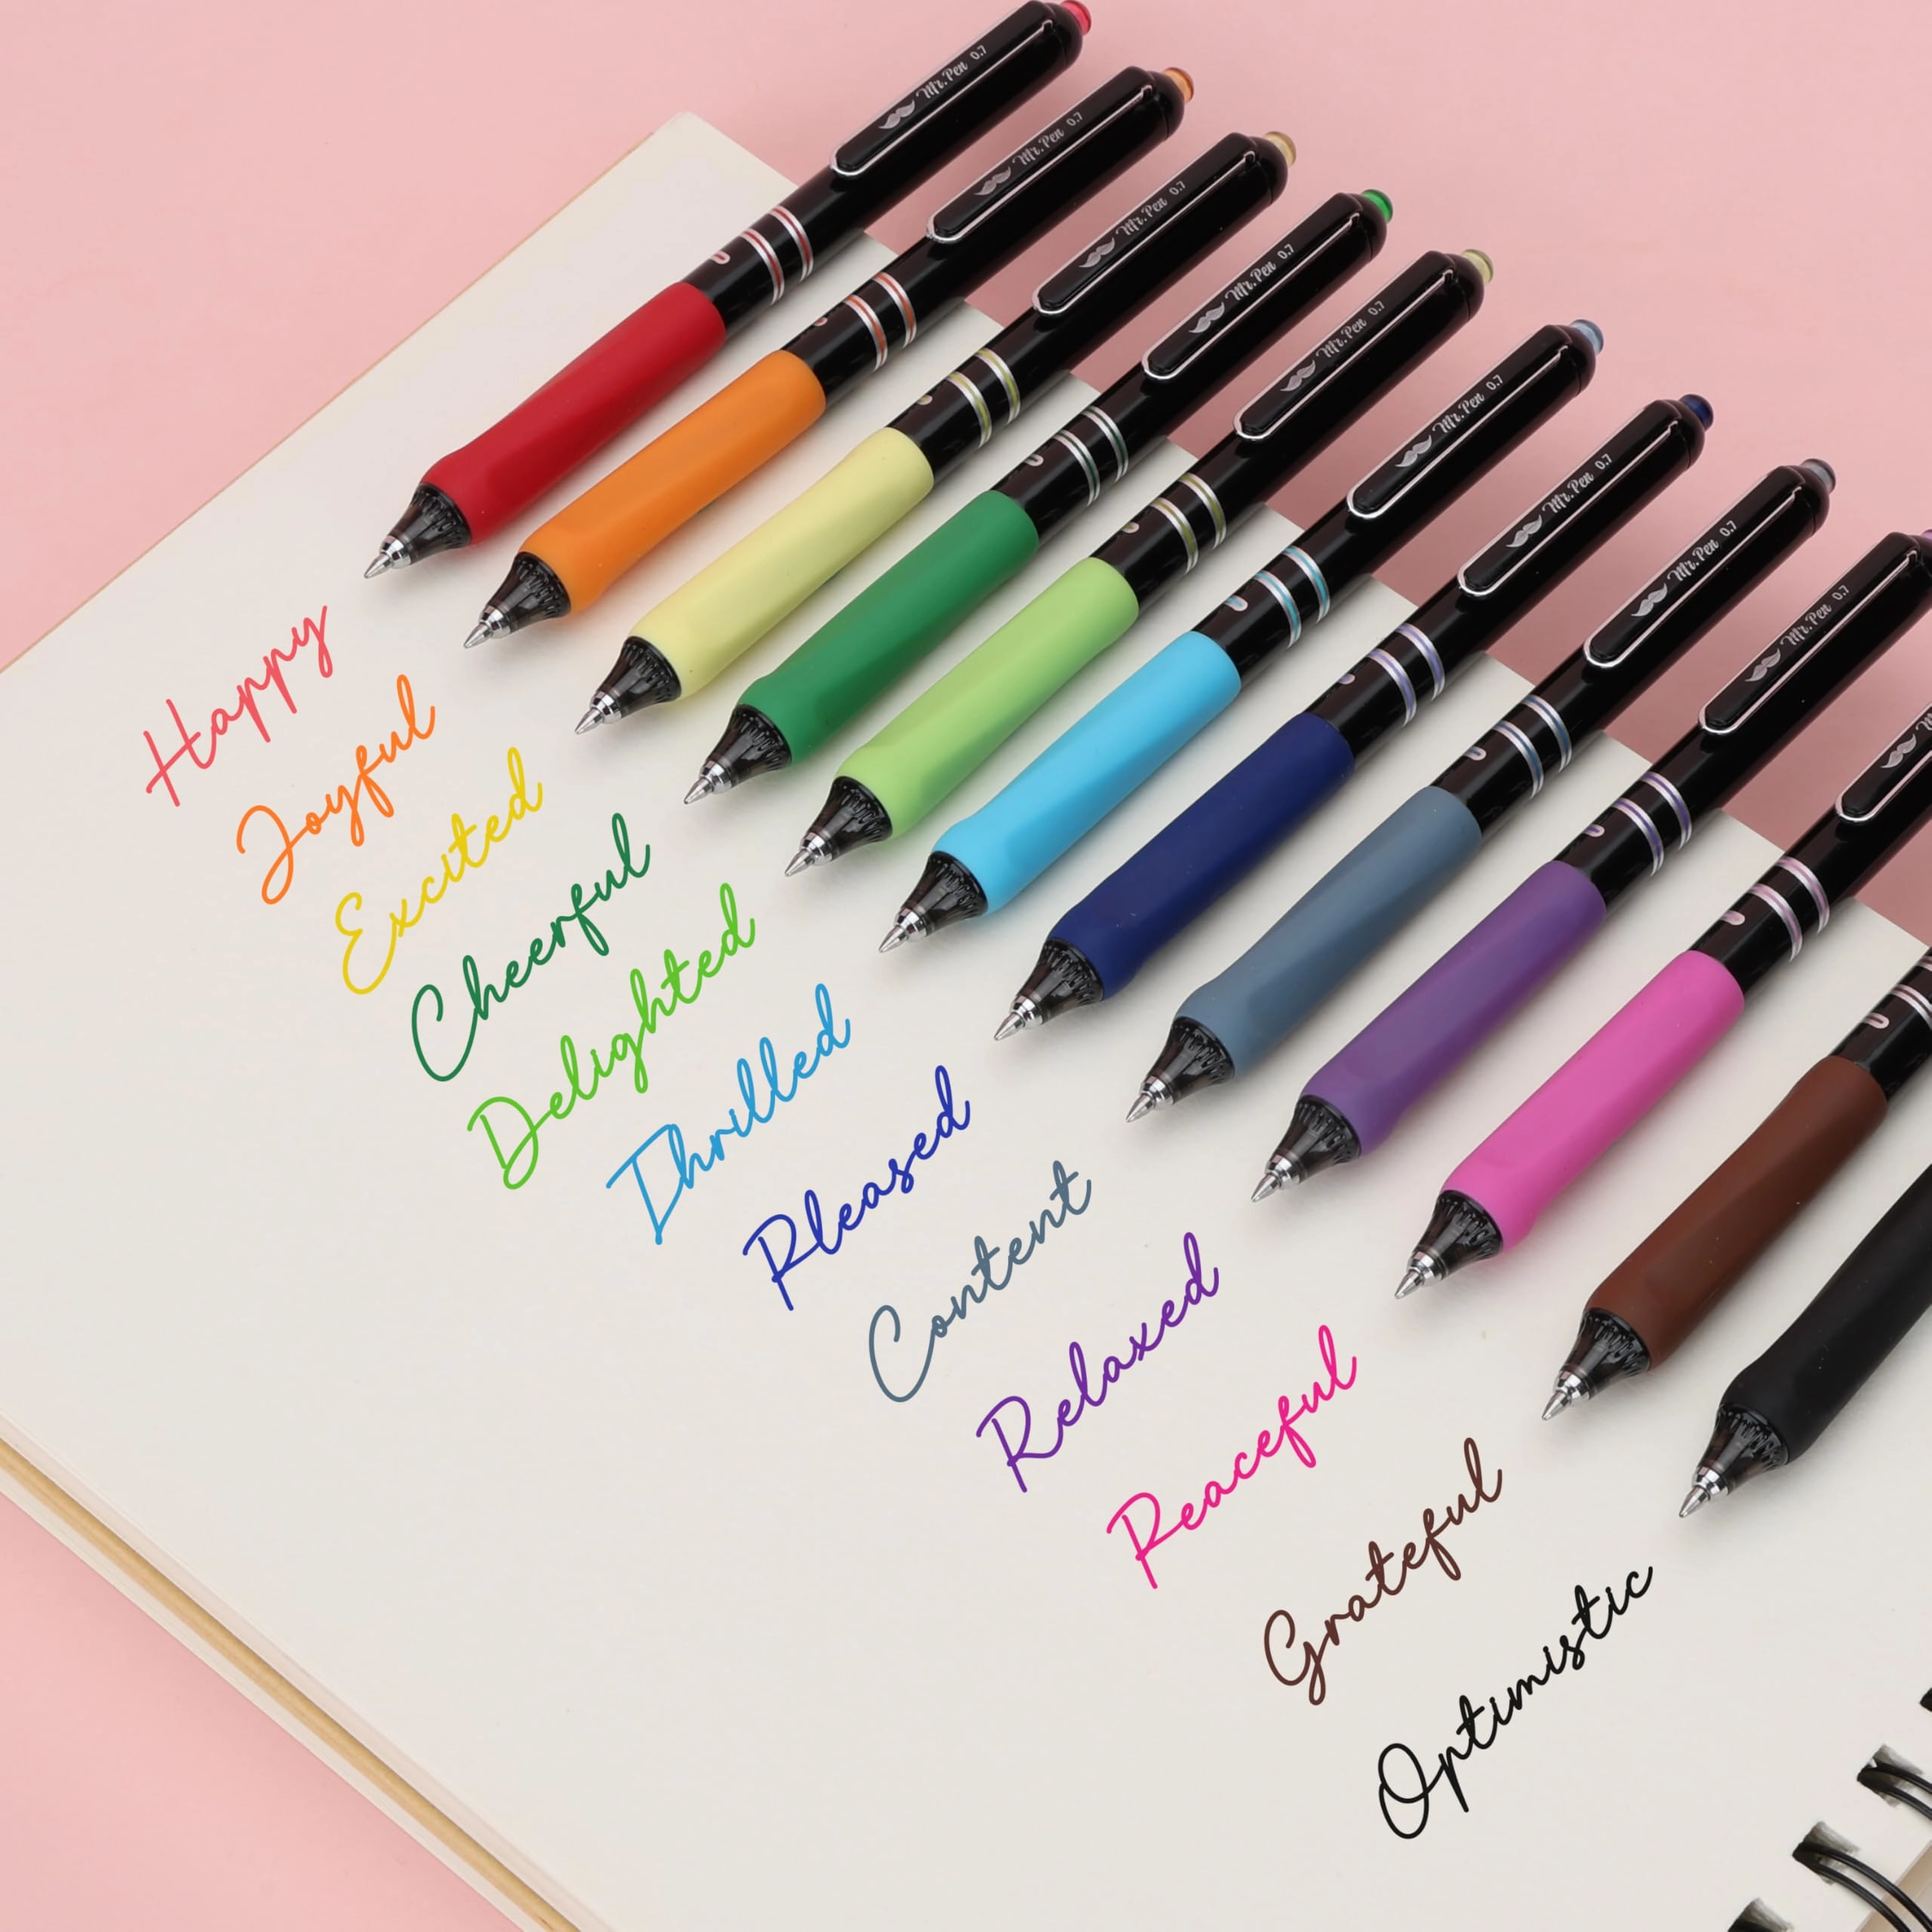 Mr. Pen 0.7
Mr. Pen 0.7
Mr. Pen 0.7
Mr. Pen 0.7
Mr. Pen 0.7
Mr. Pen 0.7
Mr. Pen 0.7
Mr. Pen 0.7
Mr. Pen 0.7
Happy
Joyful
Excited
Cheerful
Delighted
Thrilled
Pleased
Content
Relaxed
Peaceful
Grateful
Optimistic